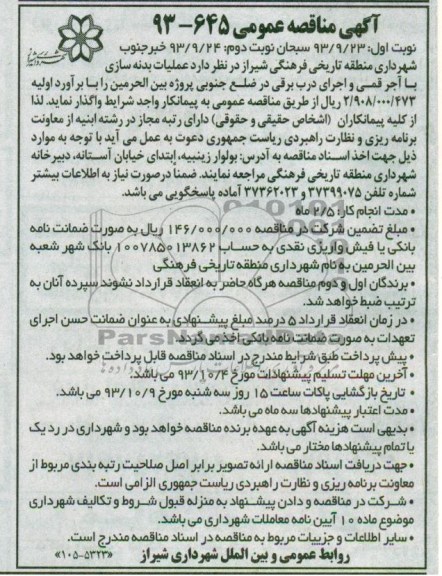 آگهی مناقصه عمومی ۶۴۵-۹۳
نوبت اول: ۹۳/۹/۲۳ سبحان نوبت دوم: ۹۳/۹/۲۴ خبرجنوب
شهرداری منطقه تاریخی فرهنگی شیراز در نظر دارد عملیات بدنه سازی
با آجر قمی و اجرای درب برقی در ضلع جنوبی پروژه بین الحرمین را با برآورد اولیه
۲/۹۰۸/۰۰۰/۴۷۳ ریال از طریق مناقصه عمومی به پیمانکار واجد شرایط واگذار نماید. لذا
از کلیه پیمانکاران (اشخاص حقیقی و حقوقی) دارای رتبه مجاز در رشته ابنیه از معاونت
برنامه ریزی و نظارت راهبردی ریاست جمهوری دعوت به عمل می آید با توجه به موارد
ذیل جهت اخذ اسناد مناقصه به آدرس: بولوار زینبیه، ابتدای خیابان آستانه، دبیرخانه
شهرداری منطقه تاریخی فرهنگی مراجعه نمایند. ضمنا در صورت نیاز به اطلاعات بیشتر
شماره تلفن ۳۷۳۹۹۰۷۵ و ۳۷۳۶۲۰۲۳ آماده پاسخگویی می باشد.
• مدت انجام کار: ۲/۵ ماه
• مبلغ تضمین شرکت در مناقصه ۱۴۶/۰۰۰/۰۰۰ ریال به صورت ضمانت نامه
بانکی یا فیش واریزی نقدی به حساب ۱۰۰۷۸۵۰۱۳۸۶۲ بانک شهر شعبه
بین الحرمین به نام شهرداری منطقه تاریخی فرهنگی
• برندگان اول و دوم مناقصه هرگاه حاضر به انعقاد قرارداد نشوند سپرده آنان به
ترتیب ضبط خواهد شد.
• در زمان انعقاد قرارداد ۵ درصد مبلغ پیشنهادی به عنوان ضمانت حسن اجرای
تعهدات به صورت ضمانت نامه بانکی اخذ می گردد.
• پیش پرداخت طبق شرایط مندرج در اسناد مناقصه قابل پرداخت خواهد بود.
• آخرین مهلت تسلیم پیشنهادات مورخ ۹۳/۱۰/۴ می باشد.
• تاریخ بازگشایی پاکات ساعت ۱۵ روز سه شنبه مورخ ۹۳/۱۰/۹ می باشد.
• مدت اعتبار پیشنهادها سه ماه می باشد.
• بدیهی است هزینه آگهی به عهده برنده مناقصه خواهد بود و شهرداری در رد یک
یا تمام پیشنهادها مختار می باشد.
• جهت دریافت اسناد مناقصه ارائه تصویر برابر اصل صلاحیت رتبه بندی مربوط از
معاونت برنامه ریزی و نظارت راهبردی ریاست جمهوری الزامی است.
• شرکت در مناقصه و دادن پیشنهاد به منزله قبول شروط و تکالیف شهرداری
موضوع ماده ۱۰ آیین نامه معاملات شهرداری می باشد.
• سایر اطلاعات و جزییات مربوط به مناقصه در اسناد مناقصه مندرج است.
روابط عمومی و بین الملل شهرداری شیراز «۱۰۵-۵۳۲۳»